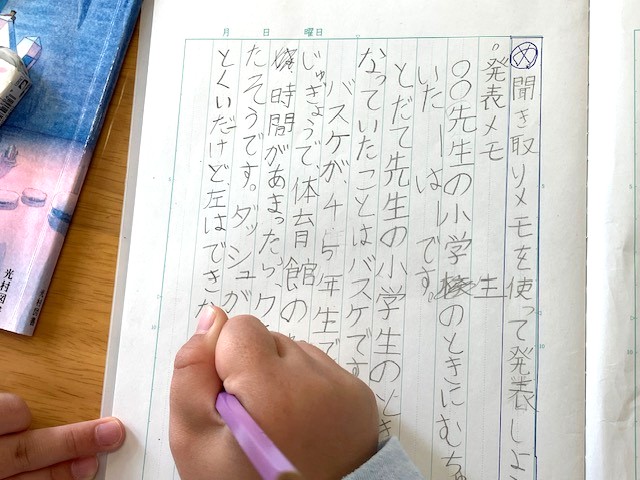 月 日 曜日
め 聞き取りメモを使って発表しよ
発表メモ
〇〇先生の小学生のときにむちゅ
いたーはーです。
とだて先生の小学生のとき
なっていたことはバスケです
バスケが、4、5年生で
じゅぎょうで、体育館の
時間があまったら、ク
たそうです。ダッシュが
とくいだけど、左はできな
光村図